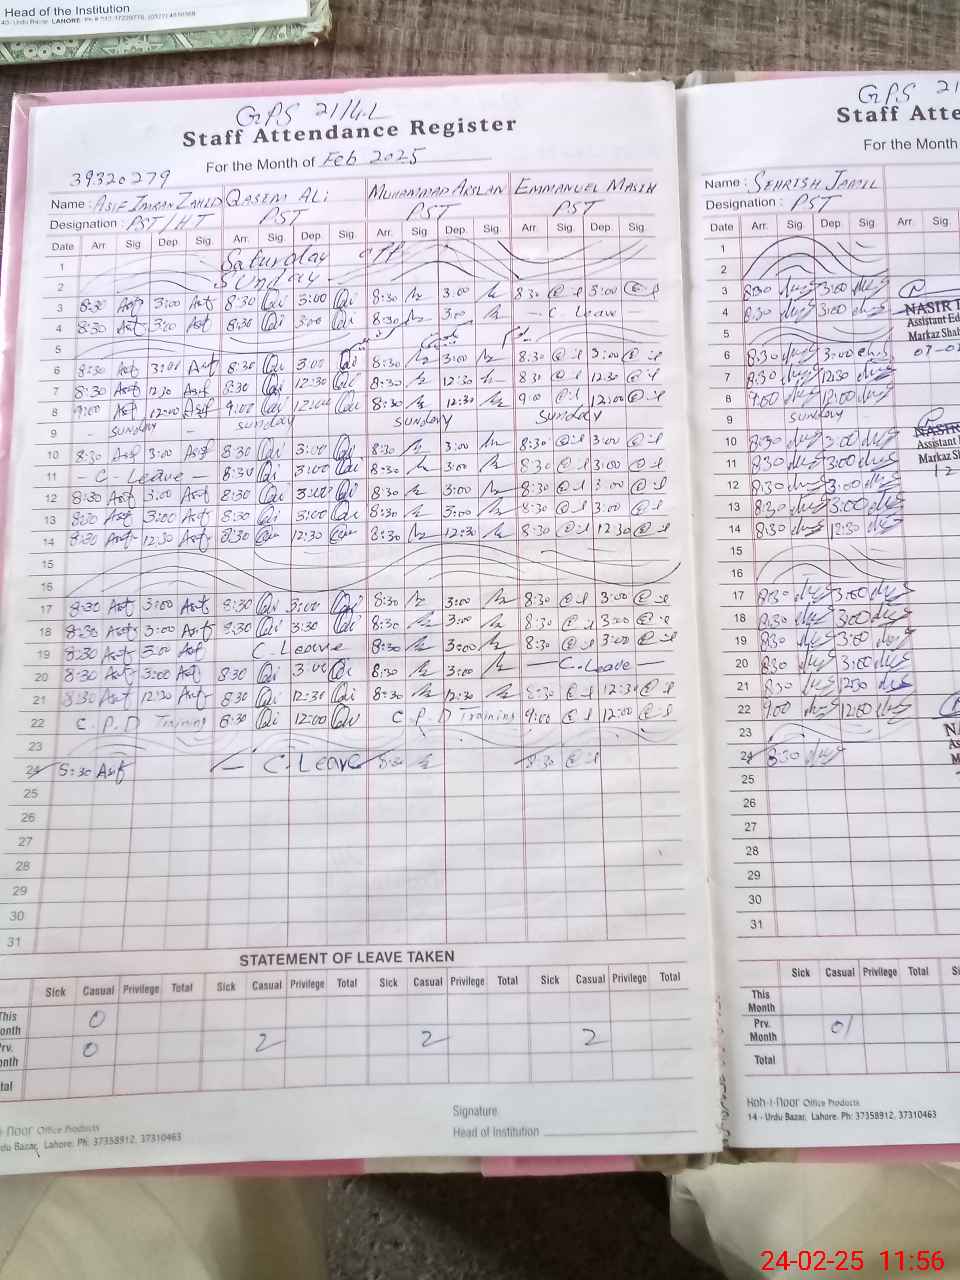 Head of the Institution
GPS 21/4.L
Staff Attendance Register
For the Month of Feb 2025
39320279
Name : ASIF IMRAN ZAHID QASEM ALI MUHAMMAD ARSLAN EMMANUEL MASIH
Designation : PST/HT PST PST PST
Date Arr. Sig. Dep. Sig. Arr. Sig. Dep. Sig. Arr. Sig. Dep. Sig. Arr. Sig. Dep. Sig.
1 Saturday off
2 Sunday
3 8:30 Asf 3:00 Asf 8:30 Qi 3:00 Qi 8:30 3:00 8:30 3:00
4 8:30 Asf 3:00 Asf 8:30 Qi 3:00 Qi 8:30 3:00 - C. Leave -
5
6 8:30 Asf 3:00 Asf 8:30 Qi 3:00 Qi 8:30 3:00 8:30 3:00
7 8:30 Asf 12:30 Asf 8:30 Qi 12:30 Qi 8:30 12:30 8:30 12:30
8 9:00 Asf 12:00 Asf 9:00 Qi 12:00 Qi 8:30 12:30 9:00 12:00
9 - SUNDAY - sunday SUNDAY SUNDAY
10 8:30 Asf 3:00 Asf 8:30 Qi 3:00 Qi 8:30 3:00 8:30 3:00
11 - C - Leave - 8:30 Qi 3:00 Qi 8:30 3:00 8:30 3:00
12 8:30 Asf 3:00 Asf 8:30 Qi 3:00 Qi 8:30 3:00 8:30 3:00
13 8:30 Asf 3:00 Asf 8:30 Qi 3:00 Qi 8:30 3:00 8:30 3:00
14 8:30 Asf 12:30 Asf 8:30 Qi 12:30 Qi 8:30 12:30 8:30 12:30
15
16
17 8:30 Asf 3:00 Asf 8:30 Qi 3:00 Qi 8:30 3:00 8:30 3:00
18 8:30 Asf 3:00 Asf 8:30 Qi 3:30 Qi 8:30 3:00 8:30 3:00
19 8:30 Asf 3:00 Asf C. Leave 8:30 3:00 8:30 3:00
20 8:30 Asf 3:00 Asf 8:30 Qi 3:00 Qi 8:30 3:00 - C. Leave -
21 8:30 Asf 12:30 Asf 8:30 Qi 12:30 Qi 8:30 12:30 8:30 12:30
22 C.P.D Training 8:30 Qi 12:00 Qi C.P.D Training 9:00 12:00
23
24 8:30 Asif - C. Leave 8:30 8:30
25
26
27
28
29
30
31
STATEMENT OF LEAVE TAKEN
Sick Casual Privilege Total Sick Casual Privilege Total Sick Casual Privilege Total Sick Casual Privilege Total
0
0 2 2 2
Office Products
Lahore. Ph: 37358912, 37310463
Signature
Head of Institution
GPS 21
Staff Atte
For the Month
Name : SEHRISH JAMIL
Designation : PST
Date Arr. Sig. Dep. Sig. Arr. Sig.
1
2
3 8:30 3:00
4 8:30 3:00
5
6 8:30 3:00
7 8:30 12:30
8 9:00 12:00
9 SUNDAY
10 8:30 3:00
11 8:30 3:00
12 8:30 3:00
13 8:30 3:00
14 8:30 12:30
15
16
17 8:30 3:00
18 8:30 3:00
19 8:30 3:00
20 8:30 3:00
21 8:30 12:30
22 9:00 12:00
23
24 8:30
25
26
27
28
29
30
31
NASIR
Assistant Ed
Markaz Shah
NASIR
Assistant
Markaz Sh
12
Sick Casual Privilege Total
This Month
Prv. Month 01
Total
Koh-i-Noor Office Products
14 - Urdu Bazar, Lahore. Ph: 37358912, 37310463
24-02-25 11:56